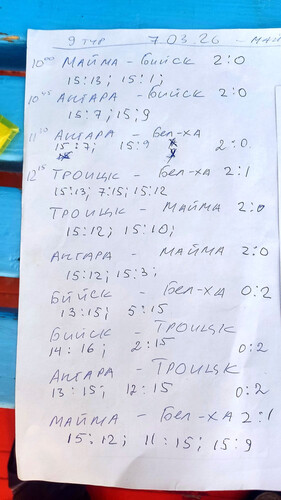 9 тур 7.03.26 - МАЙ
10⁰⁰ МАЙМА - БИЙСК 2:0
15:13; 15:1;
10⁴⁵ АНГАРА - БИЙСК 2:0
15:7; 15;9
11³⁰ АНГАРА - БЕЛ-ХА
15:7; 15:9 2:0.
12¹⁵ ТРОИЦК - БЕЛ-ХА 2:1
15:13; 7:15; 15:12
ТРОИЦК - МАЙМА 2:0
15:12; 15:10;
АНГАРА - МАЙМА 2:0
15:12; 15:3;
БИЙСК - БЕЛ-ХА 0:2
13:15; 5:15
БИЙСК - ТРОИЦК
14:16; 2:15 0:2
АНГАРА - ТРОИЦК
13:15; 12:15 0:2
МАЙМА - БЕЛ-ХА 2:1
15:12; 11:15; 15:9